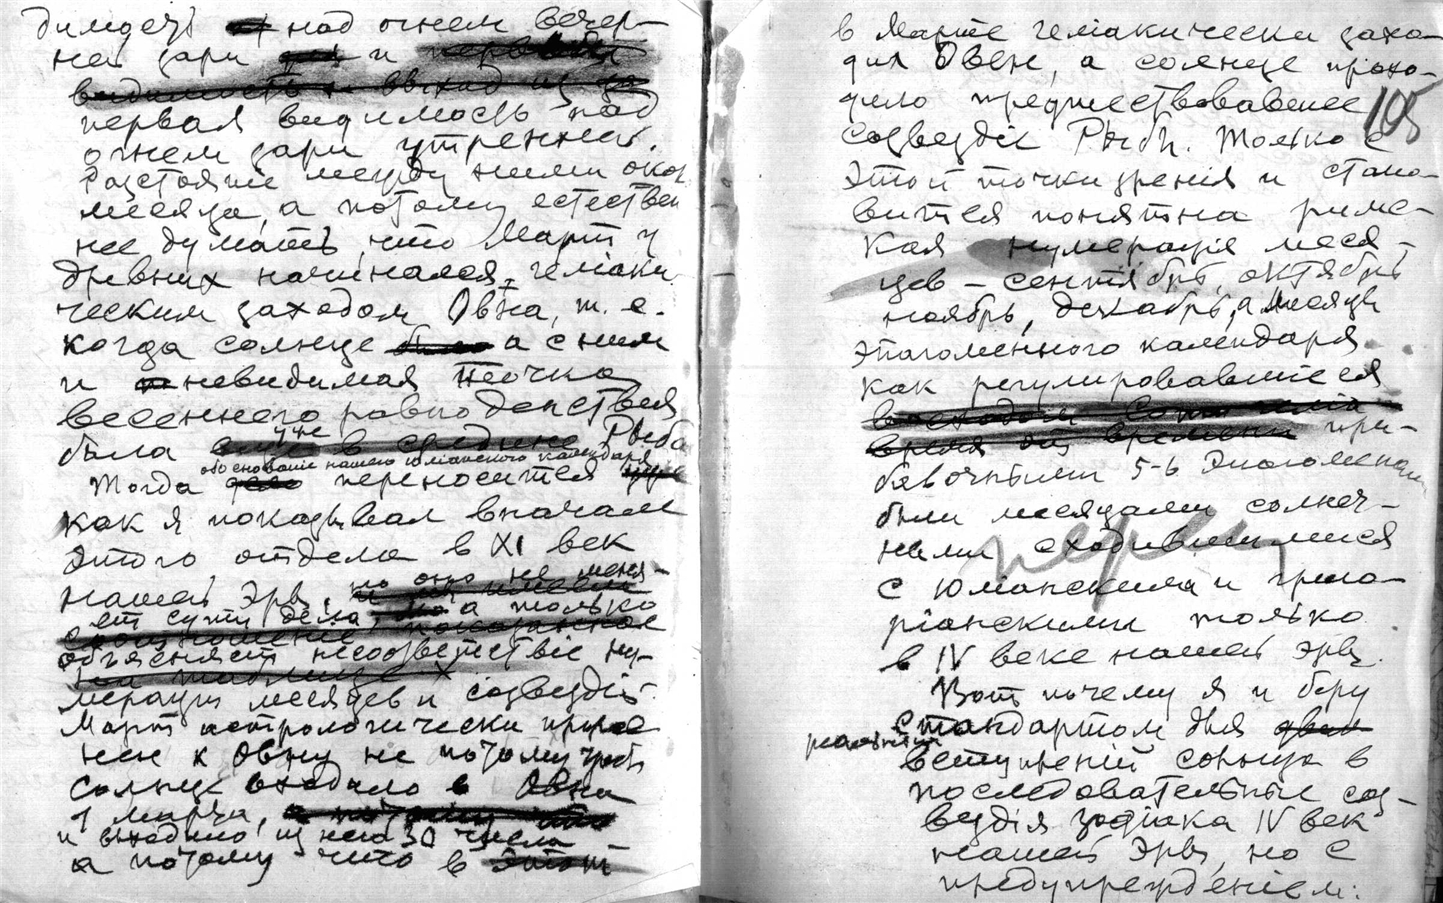 димость над огнем вечер-
ней зари и
первая видимость над
огнем зари утренней.
Разстояние между ними окол
месяца, а потому естествен
нее думать, что Март у
древних начинался гелиаки
ческим заходом Овна, т. е.
когда солнце а с ним
и невидимая точка
весеннего равноденствия
была уже в Рыба
обоснование нашего юлианского календаря
Тогда переносится
как я показывал вначале
этого отдела в XI век
нашей эры, но оно не меня-
ет сути дела, а только
объясняет несоответствие ну-
мерации месяцев и созвездий.
Март астрологически приуро
чен к Овну не потому чтоб
солнце входило в Овна
1 марта,
и выходило из него 30 числа
а потому что в
в Марте гелиакически захо-
дил Овен, а солнце прохо-
дило предшествовавшее
105
созвездие Рыбы. Только с
этой точки зрения и стано-
вится понятна римс-
кая нумерация меся-
цев – сентябрь, октябрь
ноябрь, декабрь, а месяцы
эпагоменного календаря
как регулировавшиеся
при-
бавочными 5-6 Эпагоменами
были месяцами солнеч-
ными сходившимися
с юлианскими и григо-
рианскими только
в IV веке нашей эры.
Вот почему я и беру
стандартом для
реальных
вступлений солнца в
последовательные соз-
вездия зодиака IV век
нашей эры, но с
предупреждением: